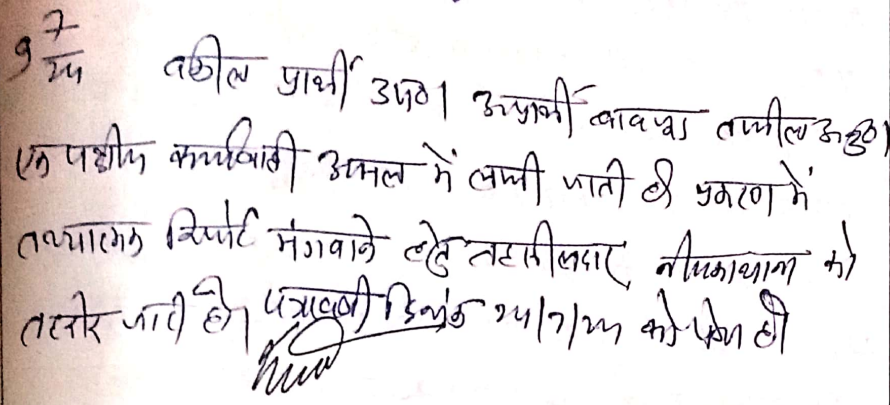 9 7/24 वकील प्रार्थी उप०। अप्रार्थी बावजूद तामील अनु०।
एक पक्षीय कार्यवाही अमल में लायी जाती है। प्रकरण में
तथ्यात्मक रिपोर्ट मंगवाने हेतु तहसीलदार नीमकाथाना को
तहरीर जारी हो। पत्रावली दिनांक 24/7/24 को पेश हो।